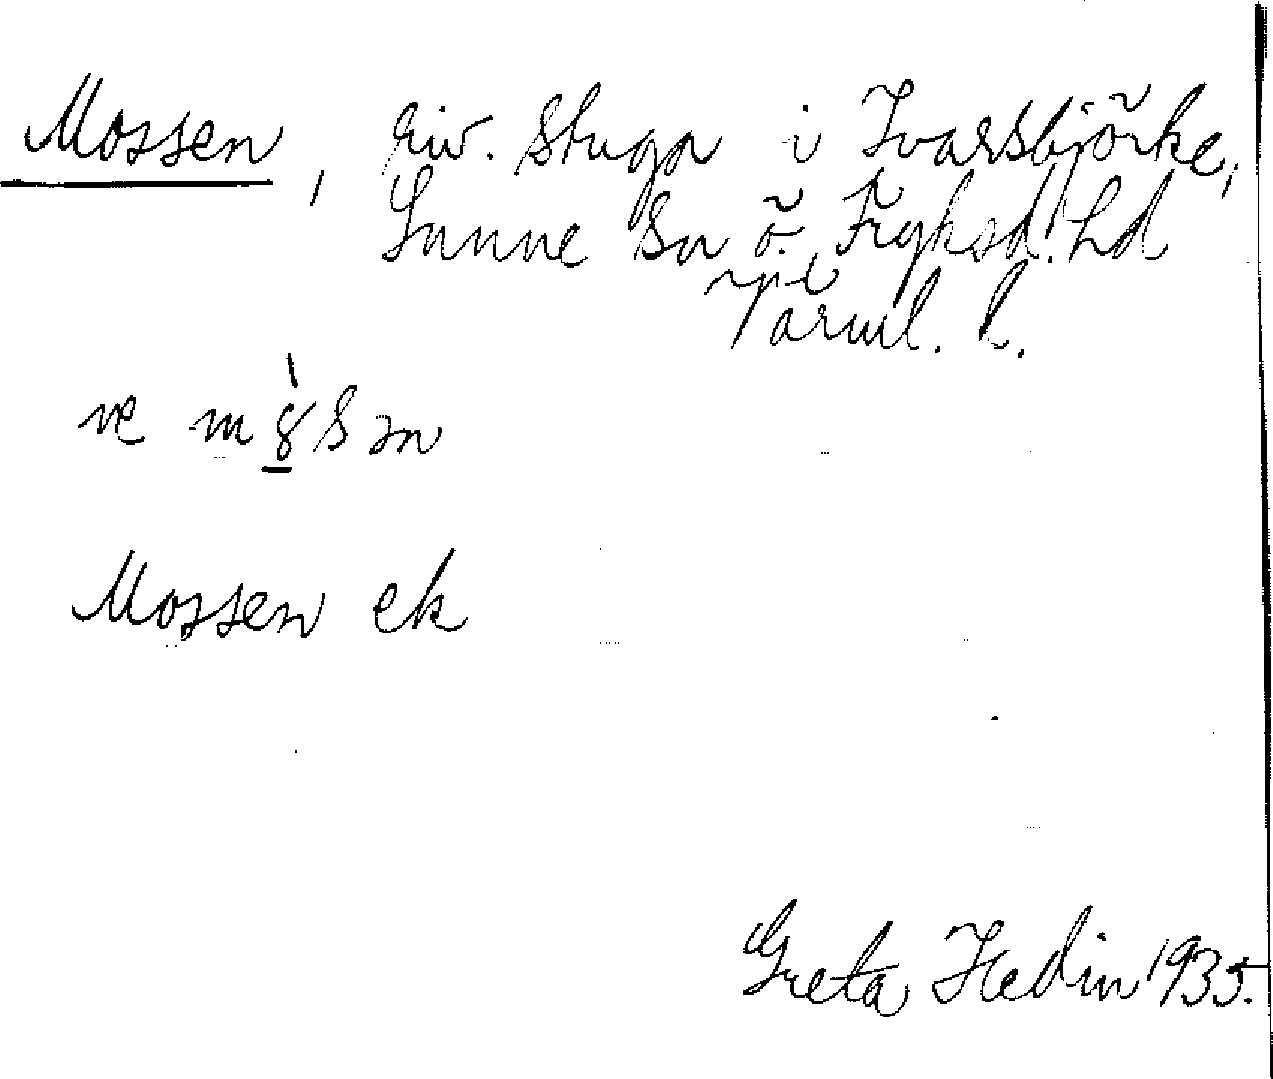 Mossen, riv. stuga i Ivarsbjörke,
Sunne sn Ö. Fryksd. hd
Värml. l.
ve m
Mossen ek
Greta Hedin 1935.